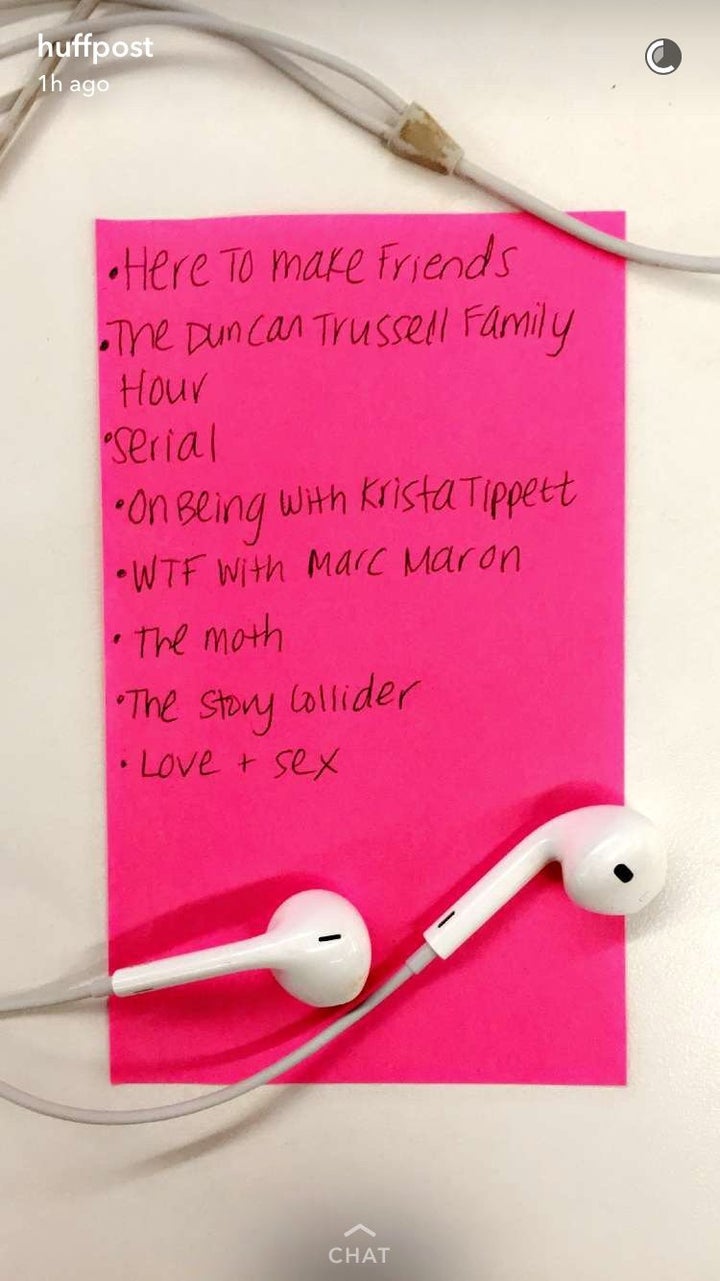 huffpost
1h ago
•Here To make Friends
•The Duncan Trussell Family
Hour
•Serial
•On Being with Krista Tippett
•WTF with Marc Maron
• The moth
•The Story Collider
• Love + sex
CHAT